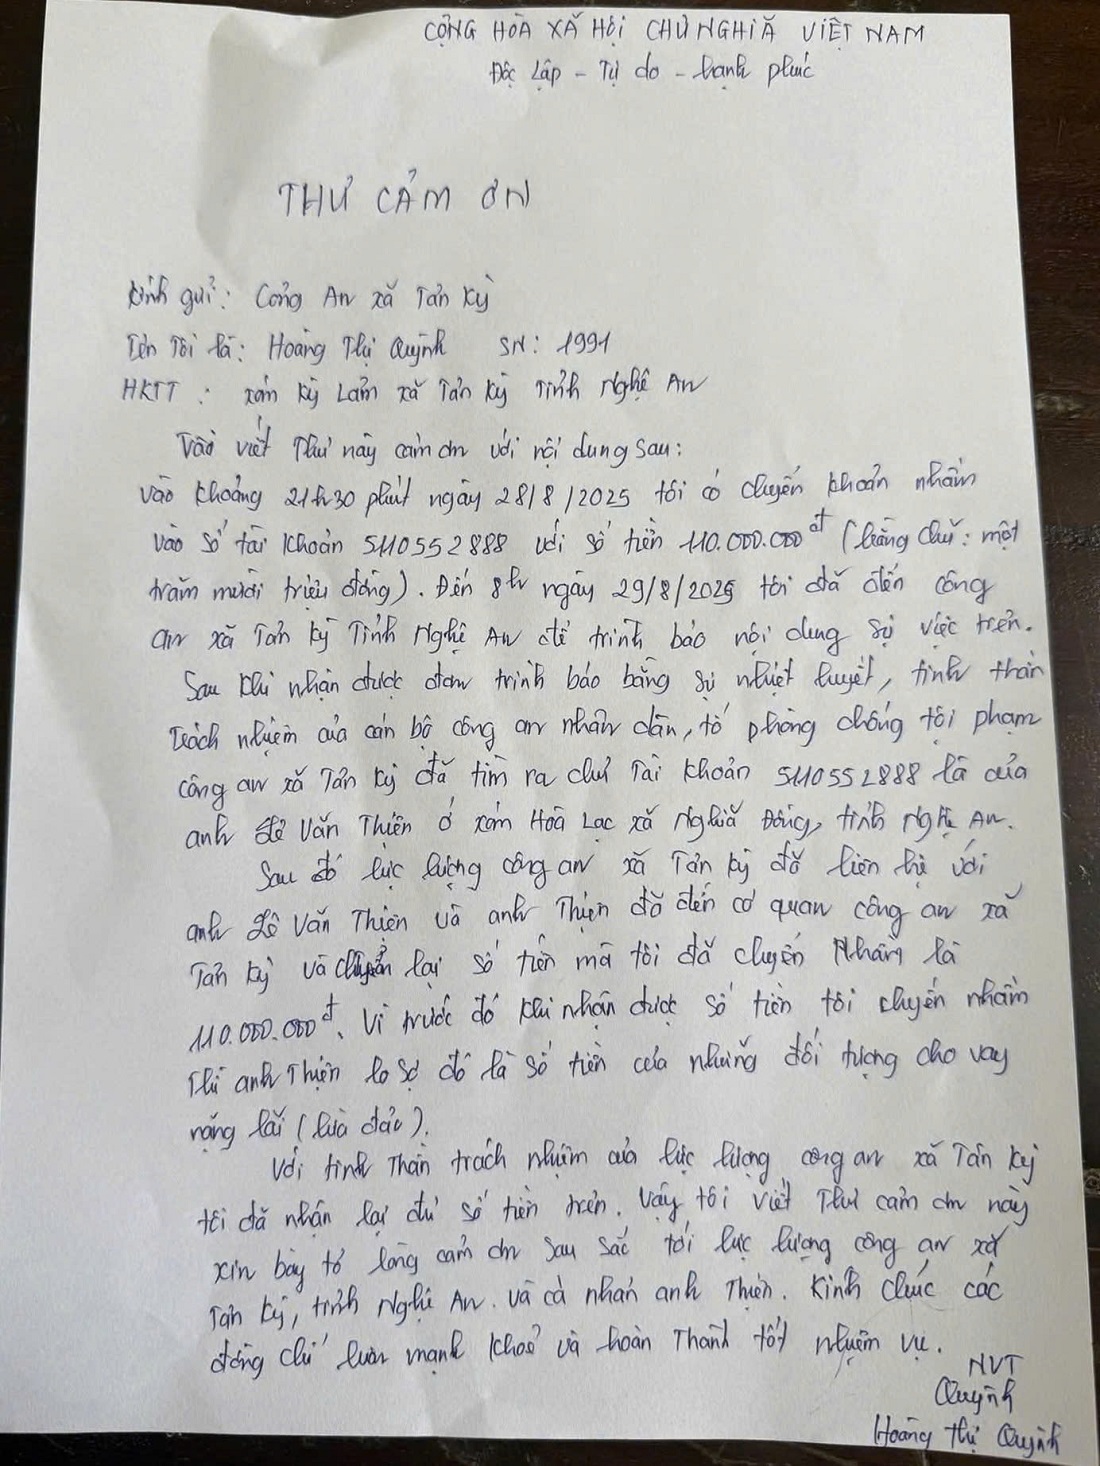 CỘNG HÒA XÃ HỘI CHỦ NGHĨA VIỆT NAM
Độc Lập - Tự do - hạnh phúc
THƯ CẢM ƠN
Kính gửi: Công An xã Tân Kỳ
Tên Tôi là: Hoàng Thị Quỳnh SN: 1991
HKTT : xóm Kỳ Lâm xã Tân Kỳ Tỉnh Nghệ An
viết Thư này cảm ơn với nội dung sau:
vào khoảng 21h30 phút ngày 28/8/2025 tôi có chuyển khoản nhầm
vào số tài khoản 5110552888 với số tiền 110.000.000đ (bằng chữ: một
trăm mười triệu đồng). Đến 8h ngày 29/8/2025 tôi đã đến công
an xã Tân Kỳ Tỉnh Nghệ An để trình báo nội dung sự việc trên.
Sau khi nhận được đơn trình báo bằng sự nhiệt huyết, tinh thần
trách nhiệm của cán bộ công an nhân dân, tổ phòng chống tội phạm
công an xã Tân Kỳ đã tìm ra chủ Tài khoản 5110552888 là của
anh Lê Văn Thiện ở xóm Hòa Lạc xã Nghĩa Đồng, tỉnh Nghệ An.
Sau đó lực lượng công an xã Tân Kỳ đã liên hệ với
anh Lê Văn Thiện và anh Thiện đã đến cơ quan công an xã
Tân Kỳ và chuyển lại số tiền mà tôi đã chuyển Nhầm là
110.000.000đ. Vì trước đó khi nhận được số tiền tôi chuyển nhầm
Thì anh Thiện lo sợ đó là số tiền của những đối tượng cho vay
nặng lãi (lừa đảo).
Với tinh Thần trách nhiệm của lực lượng công an xã Tân Kỳ
tôi đã nhận lại đủ số tiền trên. Vậy tôi viết Thư cảm ơn này
xin bày tỏ lòng cảm ơn sâu sắc tới lực lượng công an xã
Tân Kỳ, tỉnh Nghệ An. và cá nhân anh Thiện. Kính chúc các
đồng chí luôn mạnh khoẻ và hoàn Thành tốt nhiệm vụ.
NVT
Quỳnh
Hoàng Thị Quỳnh